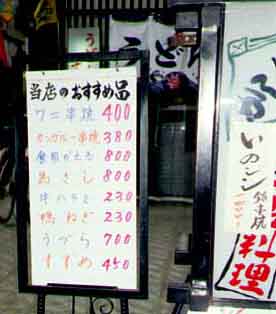 うどん
当店のおすすめ品
ワニ串焼 400
カンガルー串焼 380
食用がえる 800
馬さし 800
牛ハラミ 230
鴨ねぎ 230
うづら 700
すずめ 450
いのシシ
料理